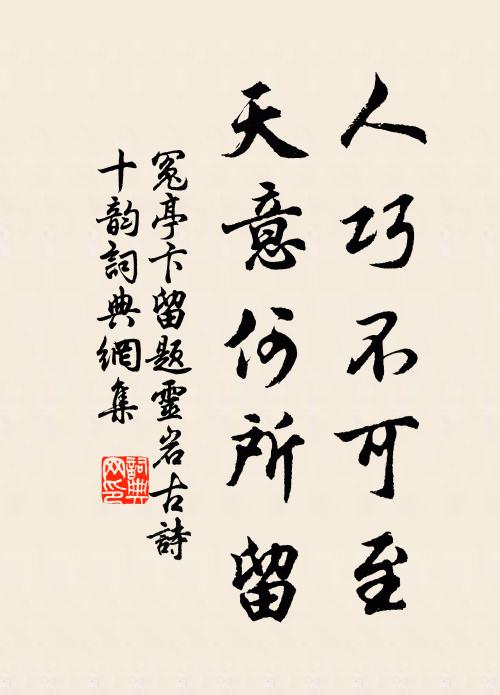 人巧不可至
天意何所留
冤亭卞留題靈岩古詩
十韵詞典網集
詞典
网印